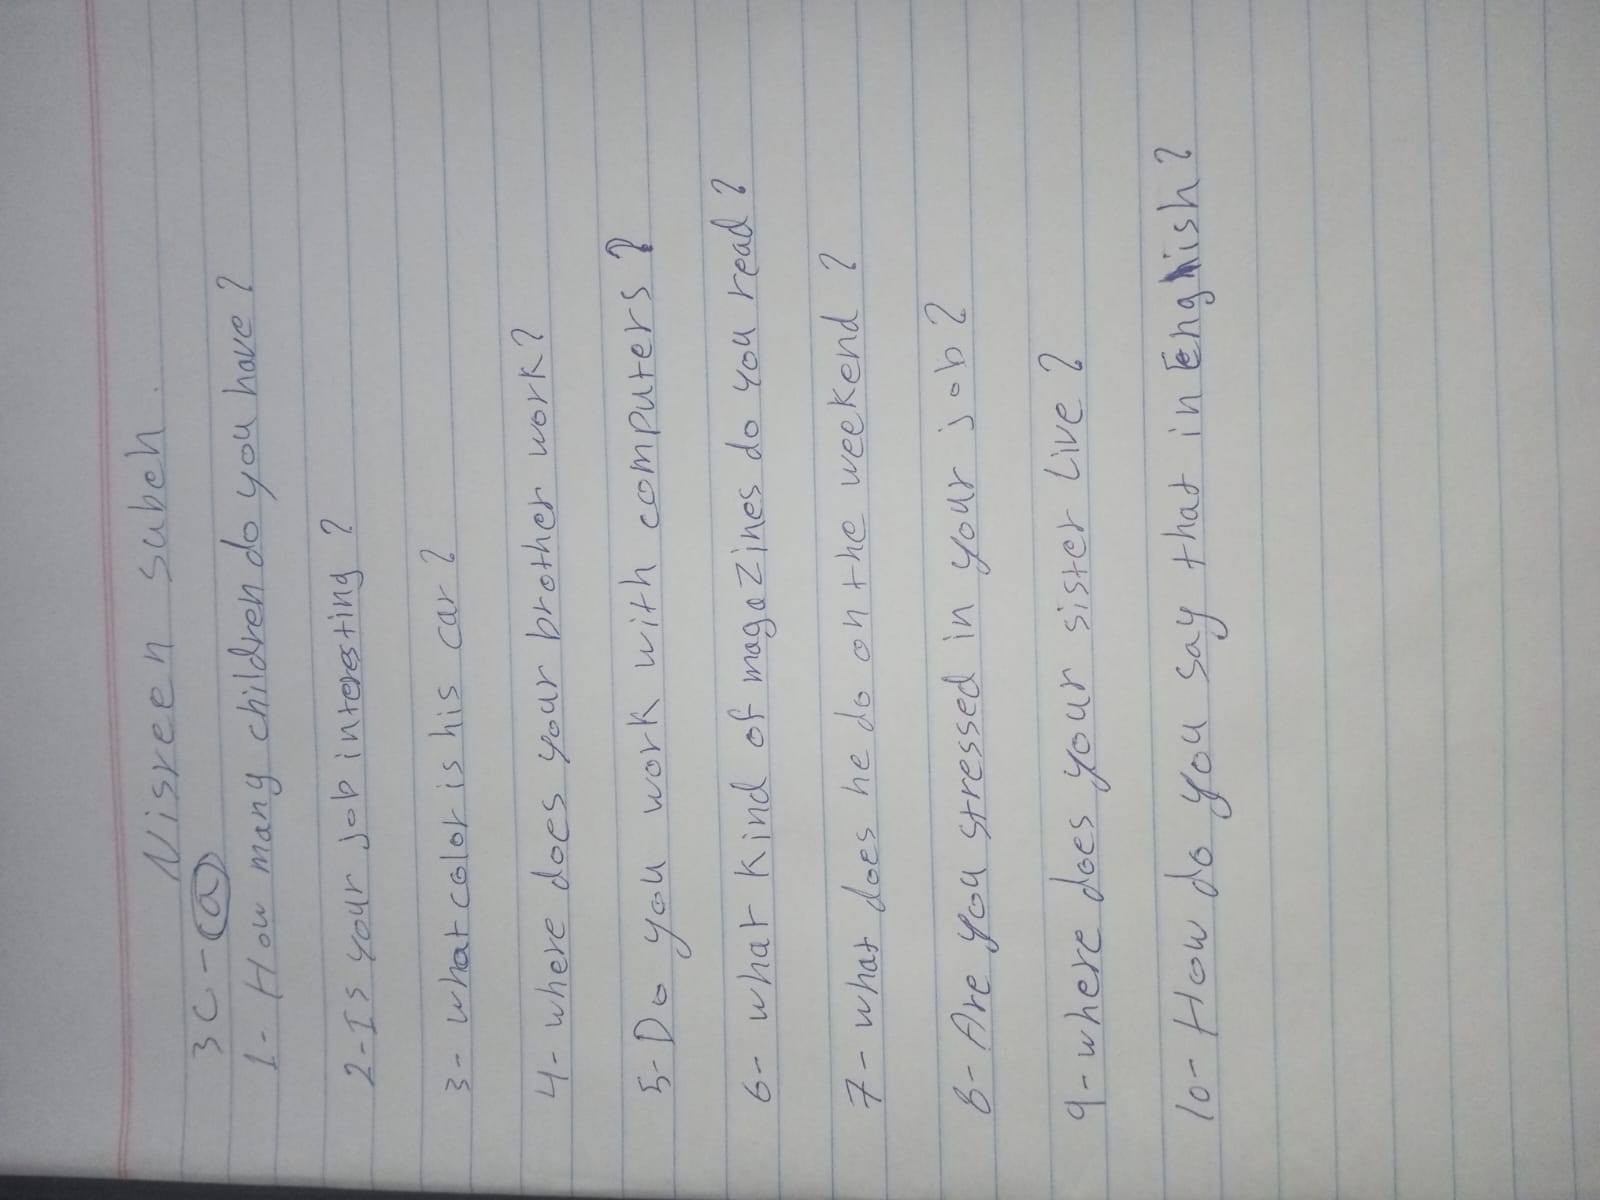 Nisreen subeh.
3C - a
1- How many children do you have?
2- Is your job interesting?
3- what color is his car?
4- where does your brother work?
5- Do you work with computers?
6- what kind of magazines do you read?
7- what does he do on the weekend?
8- Are you stressed in your job?
9- where does your sister Live?
10- How do you say that in English?